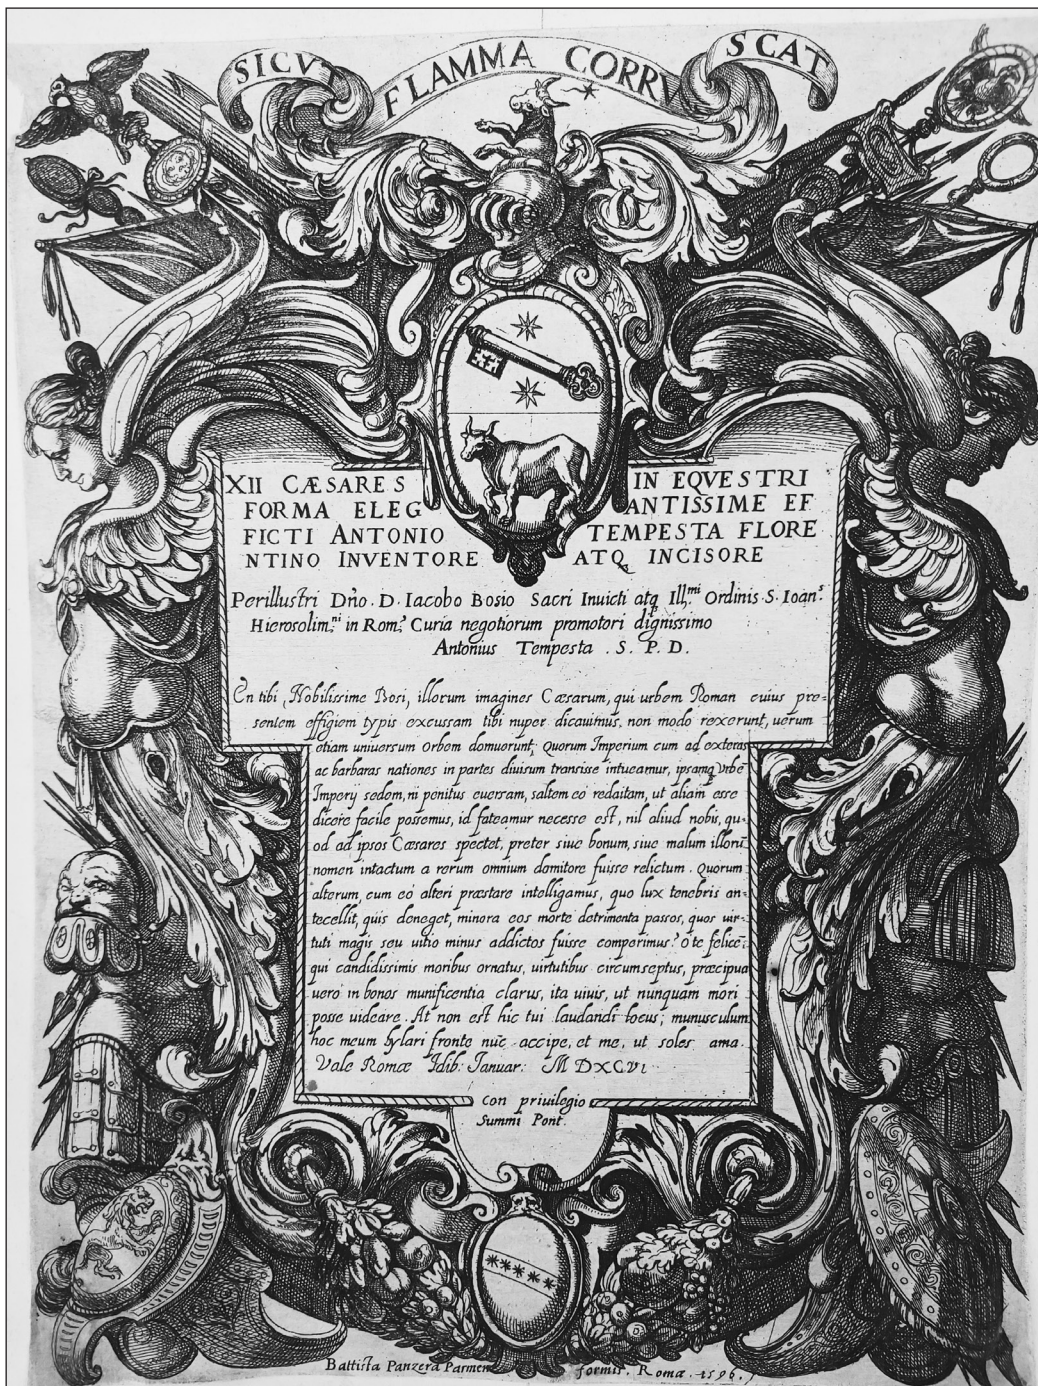 SICVT FLAMMA CORRVSCAT
XII CÆSARES IN EQVESTRI
FORMA ELEGANTISSIME EF
FICTI ANTONIO TEMPESTA FLORE
NTINO INVENTORE ATQ INCISORE
Perillustri Dño . D. Iacobo Bosio Sacri Inuicti atq Ill.mi Ordinis S. Ioañ.s
Hierosolim.ni in Rom.a Curia negotiorum promotori dignissimo
Antonius Tempesta . S. P. D.
En tibi, Nobilissime Bosi, illorum imagines Cæsarum, qui urbem Roman cuius pre=
sentem effigiem typis excussam tibi nuper dicauimus, non modo rexerunt, uerum
etiam uniuersum Orbem domuerunt, quorum Imperium cum ad exteras
ac barbaras nationes in partes diuisum transisse intueamur, ipsamq Vrbē
Imperij sedem, ni penitus euersam, saltem eo redaitam, ut aliam esse
dicere facile possemus, id fateamur necesse est, nil aliud nobis, qu=
od ad ipsos Cæsares spectet, preter siue bonum, siue malum illorū
nomen intactum a rerum omnium domitore fuisse relictum. Quorum
alterum, cum eo alteri præstare intelligamus, quo lux tenebris an=
tecellit, quis deneget, minora eos morte detrimenta passos, quos uir=
tuti magis seu uitio minus addictos fuisse comperimus? O te felicē,
qui candidissimis moribus ornatus, uirtutibus circumseptus, præcipua
uero in bonos munificentia clarus, ita uiuis, ut nunquam mori
posse uideare. At non est hic tui laudandi locus; munusculum
hoc meum hylari fronte nūc accipe, et me, ut soles ama.
Vale Romæ Idib. Ianuar: M DXCVI
Con priuilegio
Summi Pont.
Battista Panzera Parmen formis. Romæ. 1596.